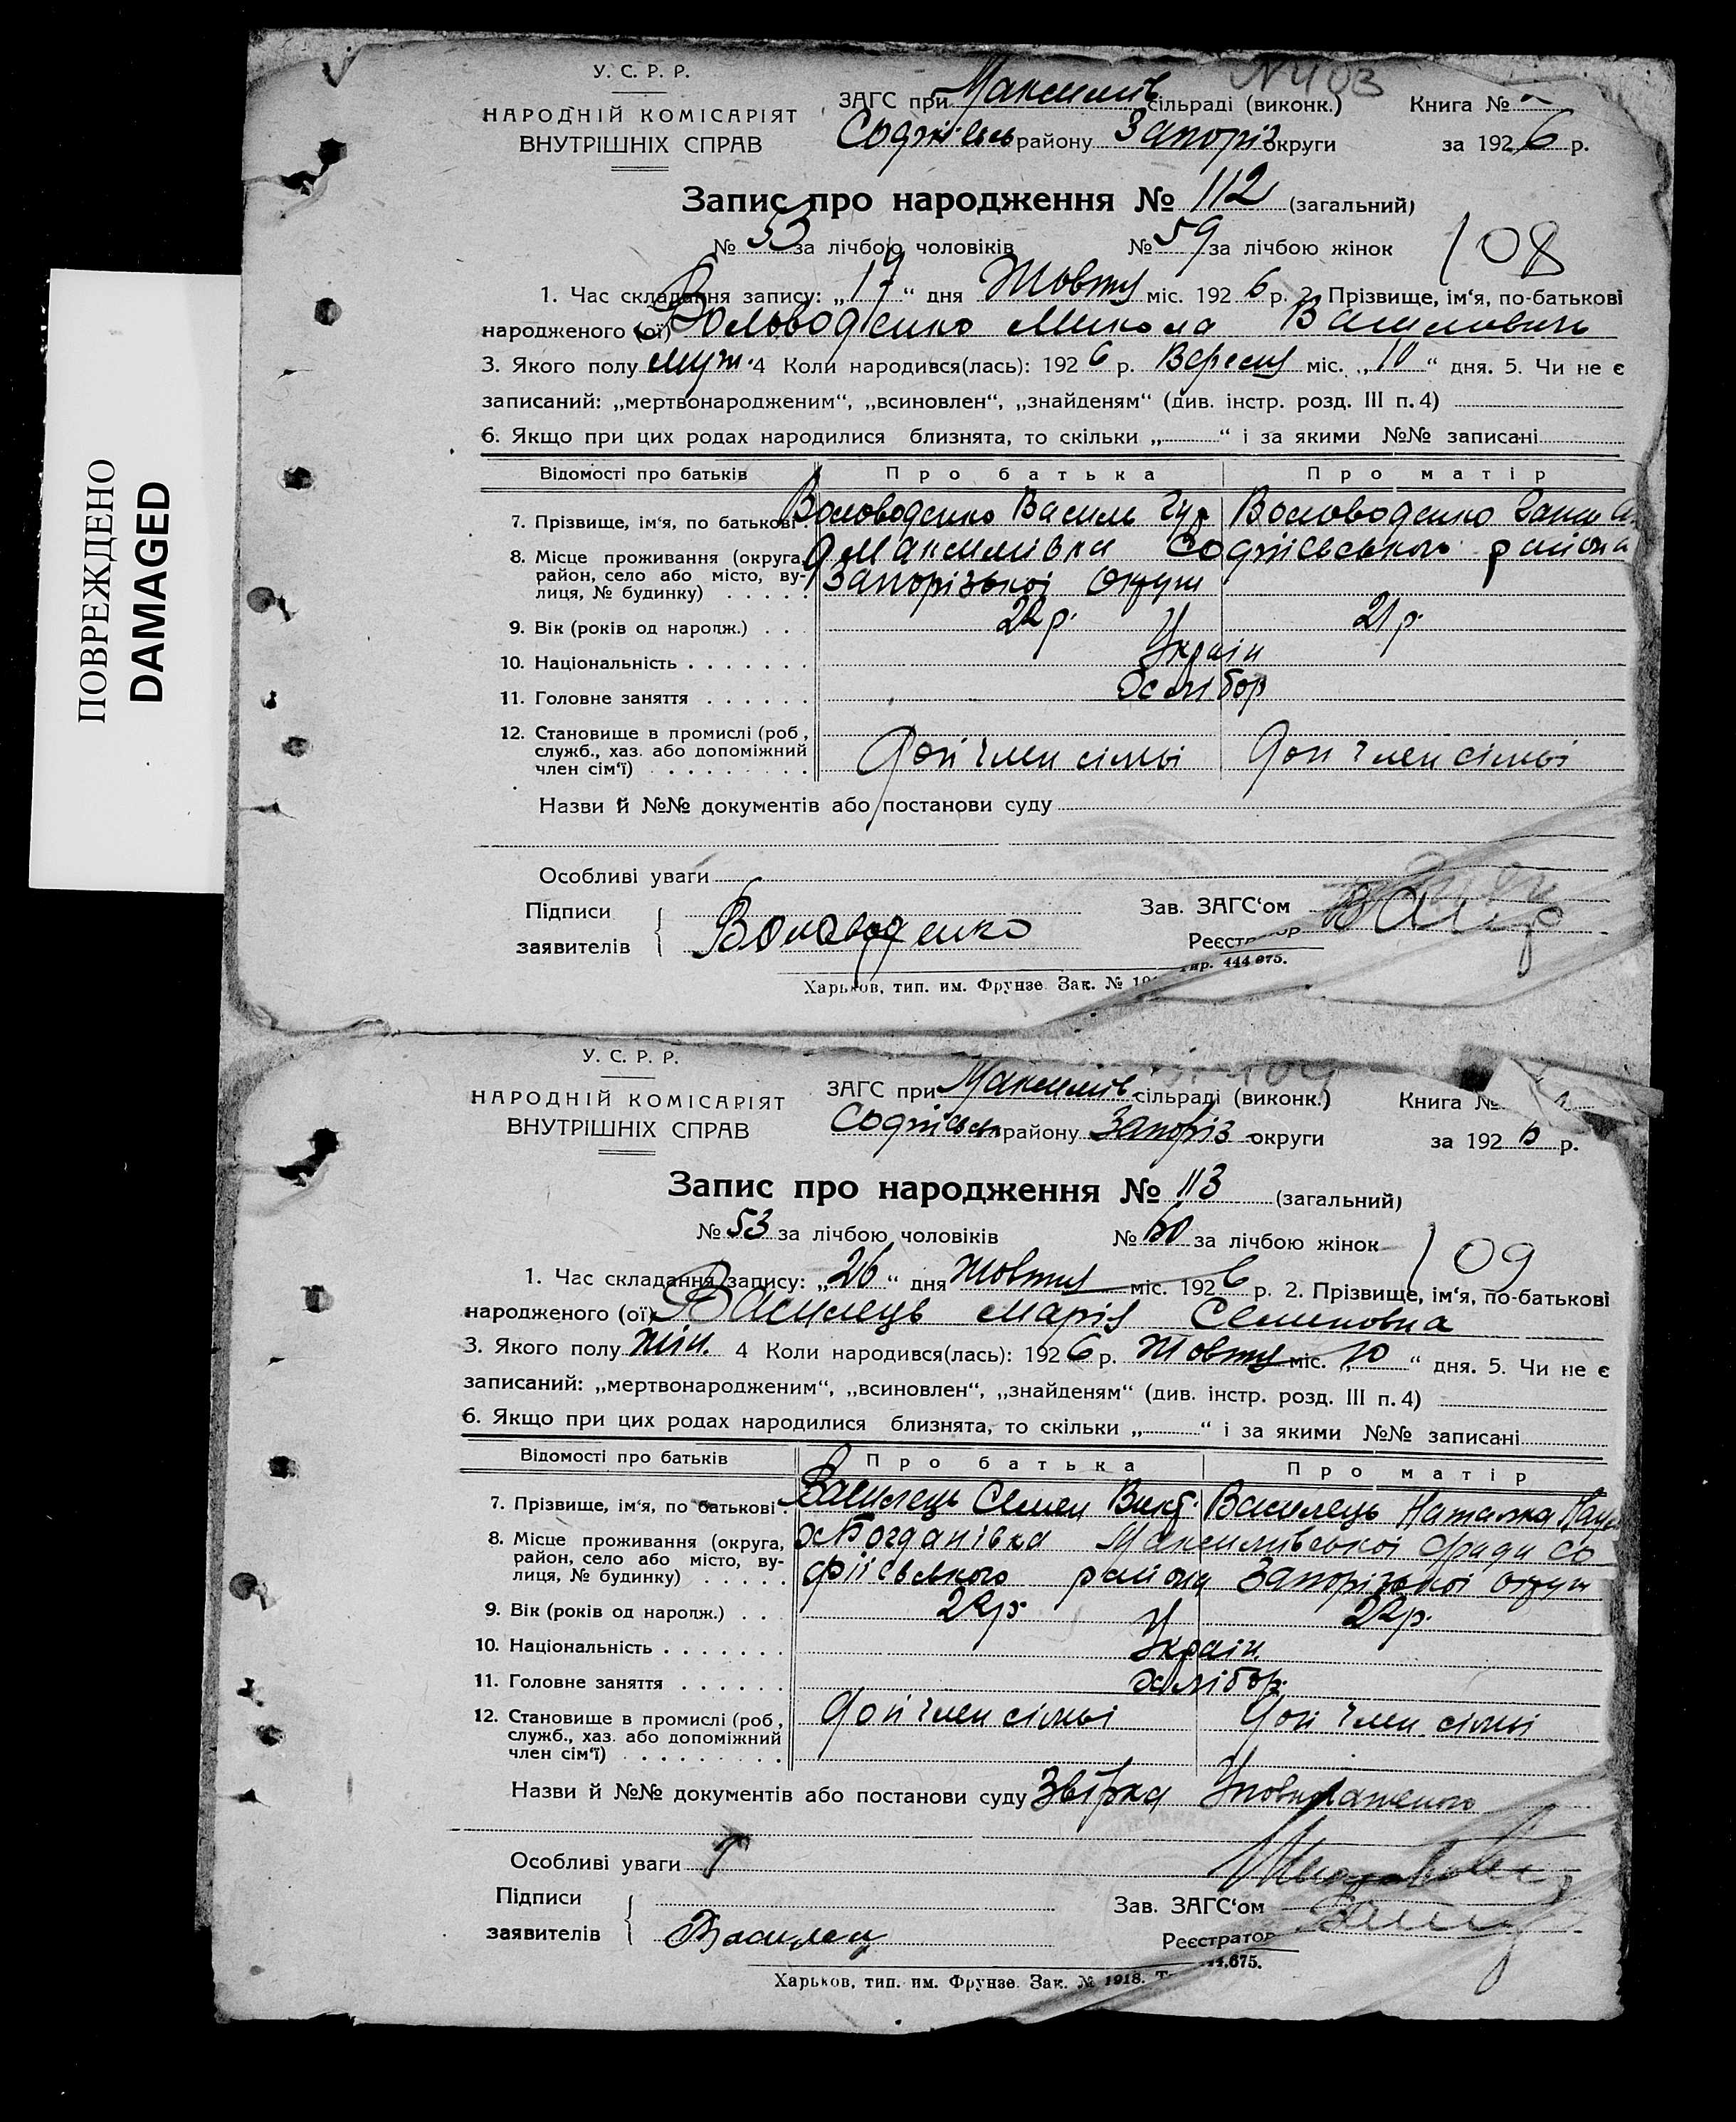 ПОВРЕЖДЕНО
DAMAGED
У. С. Р. Р.
НАРОДНІЙ КОМІСАРІЯТ
ВНУТРІШНІХ СПРАВ
ЗАГС при Максимів сільраді (виконк.)
Книга №
Софіївськ району Запоріз округи
за 1926 р.
Запис про народження № 112 (загальний)
№ 53 за лічбою чоловіків № 59 за лічбою жінок
108
1. Час складання запису: „17“ дня Жовтня міс. 1926 р. 2. Прізвище, ім‘я, по-батькові
народженого (ої) Вольводенко Микола Васильович
3. Якого полу муж. 4 Коли народився(лась): 1926 р. Вересня міс. „10“ дня. 5. Чи не є
записаний: „мертвонародженим“, „всиновлен“, „знайденям“ (див. інстр. розд. III п. 4)
6. Якщо при цих родах народилися близнята, то скільки „ “ і за якими №№ записані
Відомості про батьків Про батька Про матір
7. Прізвище, ім‘я, по батькові Воловоденко Василь Воловоденко
8. Місце проживання (округа, район, село або місто, вулиця, № будинку) Максимівка Софіївського района
Запорізької округи
9. Вік (років од народж.) 22 р. 21 р.
10. Національність Україн
11. Головне заняття хлібор
12. Становище в промислі (роб., служб., хаз. або допоміжний член сім‘ї) Доп член сімьї Доп член сімьї
Назви й №№ документів або постанови суду
Особливі уваги
Підписи
заявителів Воловоденко
Зав. ЗАГС‘ом
Реєстратор
Харьков, тип. им. Фрунзе. Зак. № 19 Тир. 444.675.
У. С. Р. Р.
НАРОДНІЙ КОМІСАРІЯТ
ВНУТРІШНІХ СПРАВ
ЗАГС при Максимів. сільраді (виконк.)
Книга №
Софіївськ району Запоріз округи
за 1926 р.
Запис про народження № 113 (загальний)
№ 53 за лічбою чоловіків № 60 за лічбою жінок
109
1. Час складання запису: „26“ дня Жовтня міс. 1926 р. 2. Прізвище, ім‘я, по-батькові
народженого (ої) Василець Марія Семеновна
3. Якого полу жін. 4 Коли народився(лась): 1926 р. Жовтня міс. „10“ дня. 5. Чи не є
записаний: „мертвонародженим“, „всиновлен“, „знайденям“ (див. інстр. розд. III п. 4)
6. Якщо при цих родах народилися близнята, то скільки „ “ і за якими №№ записані
Відомості про батьків Про батька Про матір
7. Прізвище, ім‘я, по батькові Василець Семен Викт. Василець Наталка
8. Місце проживання (округа, район, село або місто, вулиця, № будинку) х Богданівка Максимівської с ради Со
фіївського района Запорізької округи
9. Вік (років од народж.) 22 р. 22 р.
10. Національність Україн.
11. Головне заняття хлібор.
12. Становище в промислі (роб., служб., хаз. або допоміжний член сім‘ї) Доп член сімьї Доп член сімьї
Назви й №№ документів або постанови суду Звірка Уповноваженого
Особливі уваги
Підписи
заявителів Василец
Зав. ЗАГС‘ом
Реєстратор
Харьков, тип. им. Фрунзе. Зак. № 1918. Т 44.675.